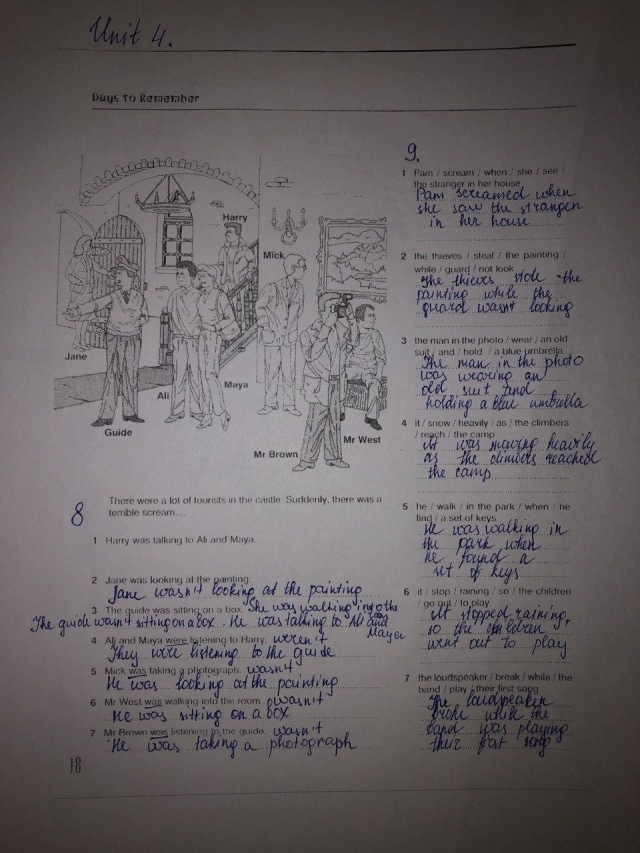 Unit 4.
Days to Remember
Harry
Mick
Jane
Ali
Maya
Guide
Mr Brown
Mr West
8
There were a lot of tourists in the castle. Suddenly, there was a
terrible scream....
1 Harry was talking to Ali and Maya.
2 Jane was looking at the painting.
Jane wasn't looking at the painting
3 The guide was sitting on a box. She was walking into the
The guide wasn't sitting on a box. He was talking to Ali and
Mayer
4 Ali and Maya were listening to Harry. weren't
They were listening to the guide
5 Mick was taking a photograph. wasn't
He was looking at the painting
6 Mr West was walking into the room. wasn't
He was sitting on a box
7 Mr Brown was listening to the guide. wasn't
He was taking a photograph
18
9.
1 Pam / scream / when / she / see /
the stranger in her house
Pam screamed when
she saw the stranger
in her house
2 the thieves / steal / the painting /
while / guard / not look
The thieves stole the
painting while the
guard wasn't looking
3 the man in the photo / wear / an old
suit / and / hold / a blue umbrella
The man in the photo
was wearing an
old suit and
holding a blue umbrella
4 it / snow / heavily / as / the climbers
/ reach / the camp
It was snowing heavily
as the climbers reached
the camp
5 he / walk / in the park / when / he
find / a set of keys
He was walking in
the park when
he found a
set of keys
6 it / stop / raining / so / the children
/ go out / to play
It stopped raining,
so the children
went out to play
7 the loudspeaker / break / while / the
band / play / their first song
The loudspeaker
broke while the
band was playing
their first song